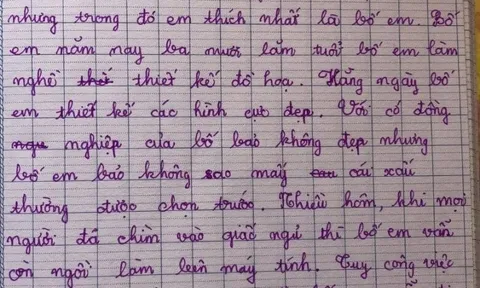 nhưng trong đó em thích nhất là bố em. Bố
em năm nay ba mươi lăm tuổi bố em làm
nghề thiết kế đồ hoạ. Hằng ngày bố
em thiết kế các hình cực đẹp. Với cô đồng
nghiệp của bố bảo không đẹp nhưng
bố em bảo không sao mấy cái xấu
thường được chọn trước. Nhiều hôm, khi mọi
người đã chìm vào giấc ngủ thì bố em vẫn
còn ngồi làm bên máy tính. Tuy công việc